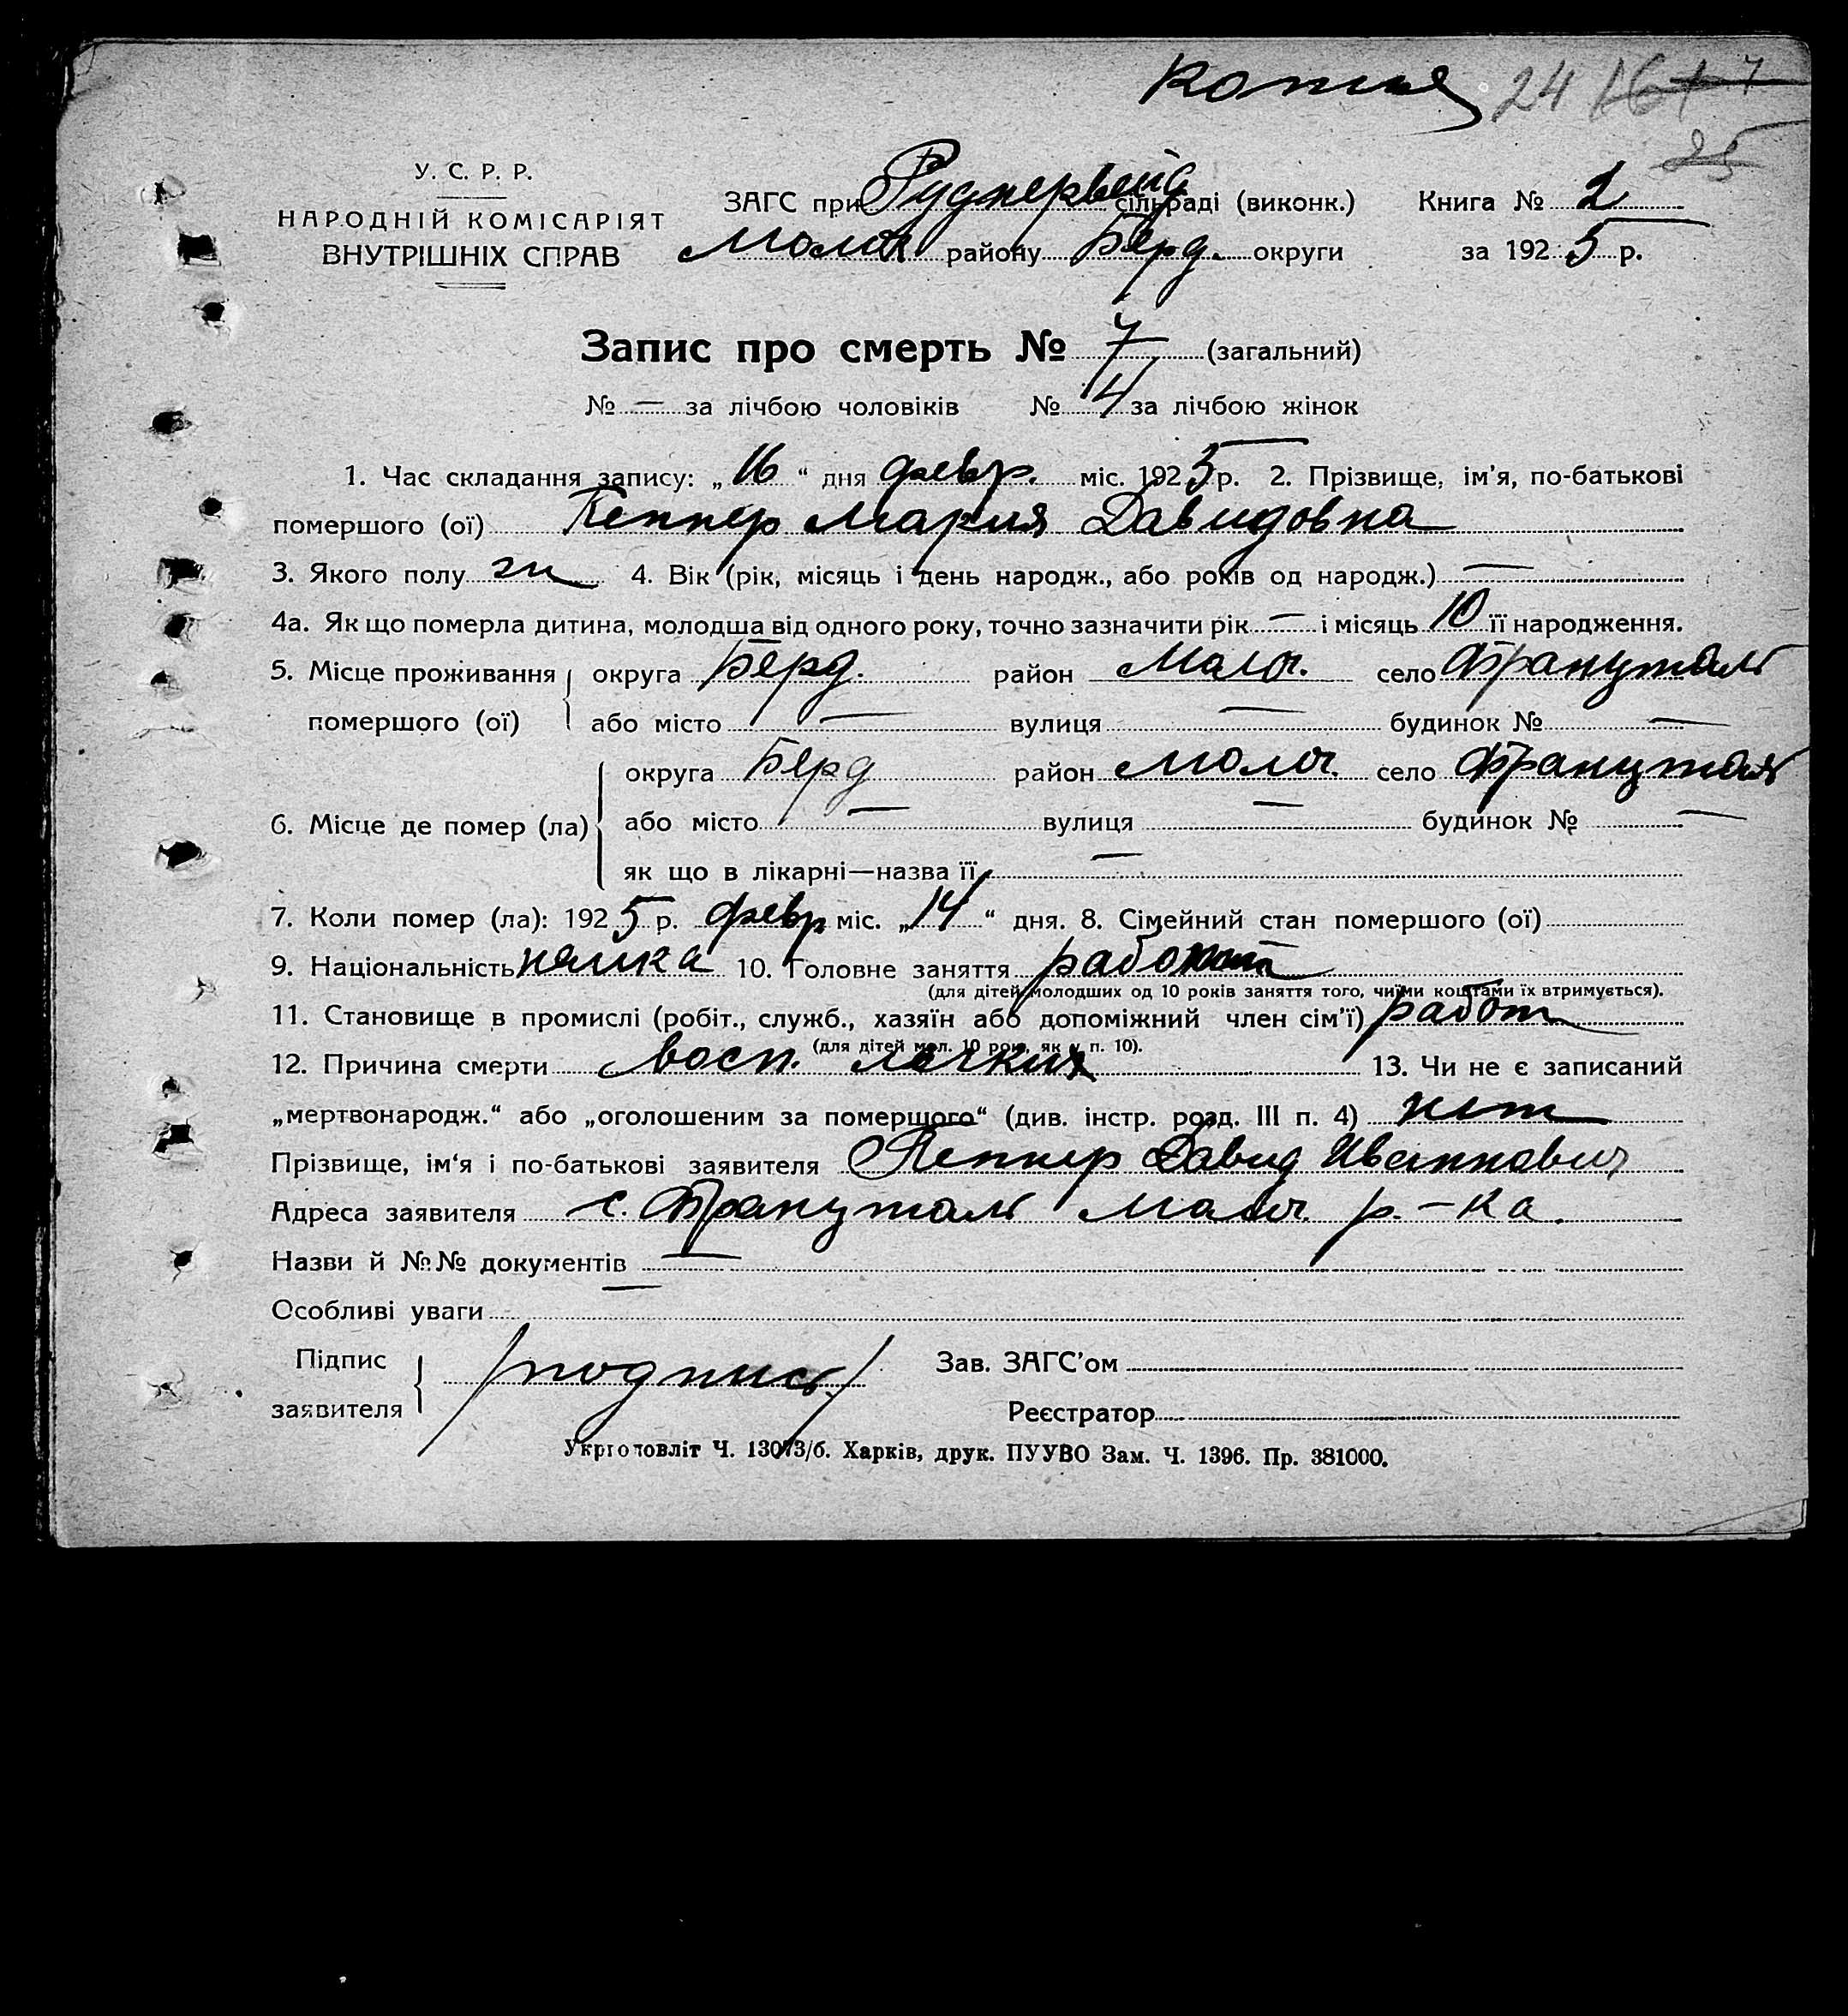 Копия 24 16 + 7
25
У. С. Р. Р.
НАРОДНІЙ КОМІСАРІЯТ
ВНУТРІШНІХ СПРАВ
ЗАГС при Руднервейд сільраді (виконк.) Книга № 1
Молоч району Берд. округи за 1925 р.
Запис про смерть № 7 (загальний)
№ — за лічбою чоловіків № 4 за лічбою жінок
1. Час складання запису: „16“ дня февр. міс. 1925 р. 2. Прізвище, ім'я, по-батькові
помершого (ої) Теппер Мария Давидовна
3. Якого полу ж 4. Вік (рік, місяць і день народж., або років од народж.) —
4а. Як що померла дитина, молодша від одного року, точно зазначити рік — і місяць 10 її народження.
5. Місце проживання помершого (ої) округа Берд. район Молоч. село Францталь
або місто — вулиця — будинок № —
6. Місце де помер (ла) округа Берд район Молоч. село Францталь
або місто — вулиця — будинок № —
як що в лікарні—назва її —
7. Коли помер (ла): 1925 р. февр міс. „14“ дня. 8. Сімейний стан помершого (ої)
9. Національність немка 10. Головне заняття
(для дітей молодших од 10 років заняття того, чиїми коштами їх втримується).
11. Становище в промислі (робіт., служб., хазяїн або допоміжний член сім'ї) работ
(для дітей мол. 10 рок. як у п. 10).
12. Причина смерти восп. легких 13. Чи не є записаний
„мертвонародж.“ або „оголошеним за помершого“ (див. інстр. розд. III п. 4) нет
Прізвище, ім'я і по-батькові заявителя Теппер Давид Иванович
Адреса заявителя с. Францталь Молоч. р.-ка.
Назви й №№ документів —
Особливі уваги —
Підпис заявителя /подпись/ Зав. ЗАГС'ом
Реєстратор
Укрголовліт Ч. 13073/б. Харків, друк. ПУУВО Зам. Ч. 1396. Пр. 381000.